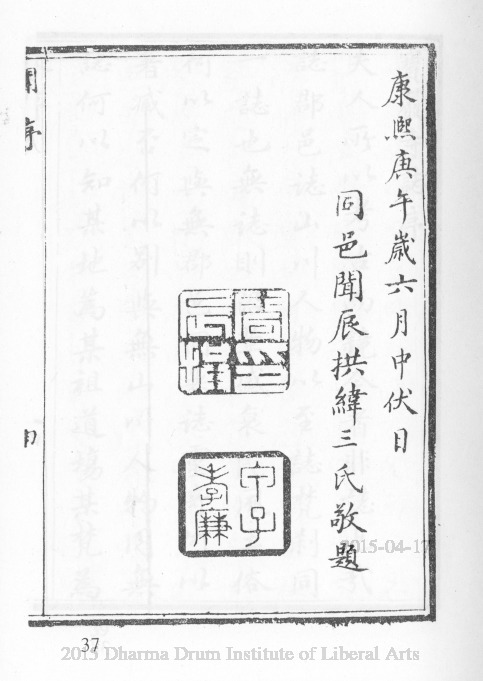 康熙庚午歲六月中伏日
同邑聞辰拱緯三氏敬題
甲子孝廉
2015-04-17
37
2015 Dharma Drum Institute of Liberal Arts